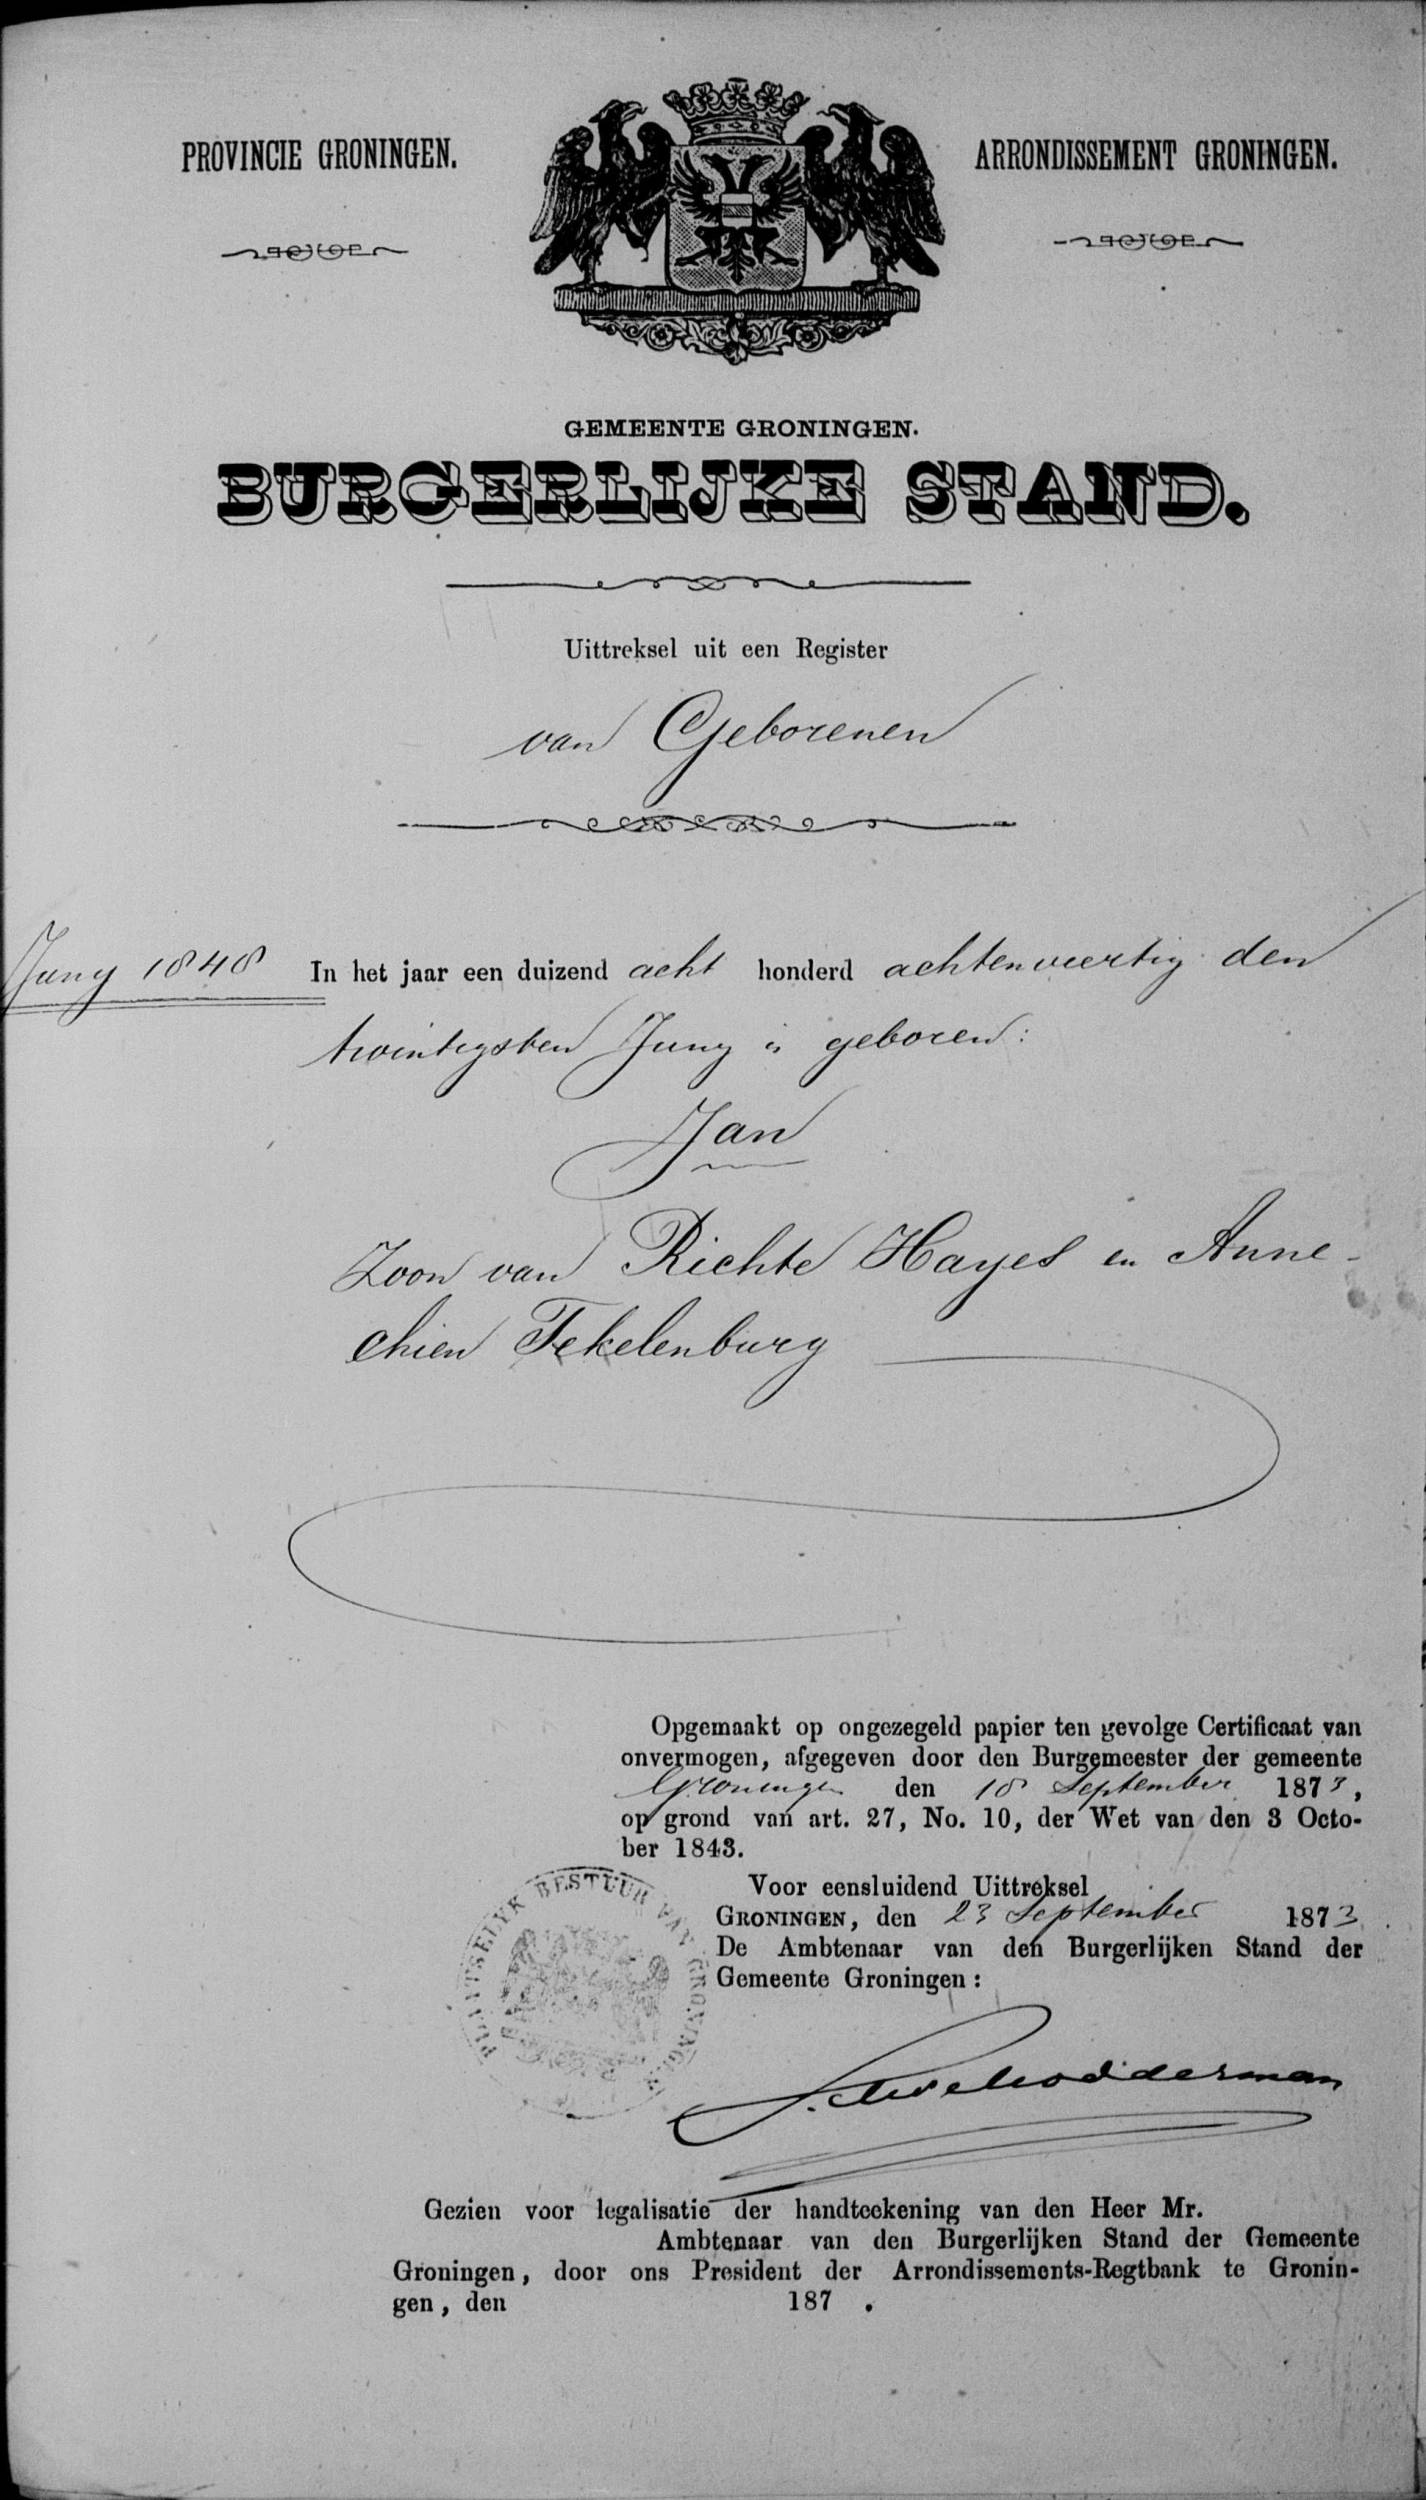 PROVINCIE GRONINGEN.
ARRONDISSEMENT GRONINGEN.
GEMEENTE GRONINGEN.
BURGERLIJKE STAND.
Uittreksel uit een Register
van Geborenen
Juny 1848
In het jaar een duizend acht honderd achtenveertig den
twintigsten Juny is geboren:
Jan
Zoon van Richte Hayes en Anne-
chien Tekelenburg
Opgemaakt op ongezegeld papier ten gevolge Certificaat van
onvermogen, afgegeven door den Burgemeester der gemeente
Groningen den 18 September 1873,
op grond van art. 27, No. 10, der Wet van den 3 Octo-
ber 1843.
Voor eensluidend Uittreksel
GRONINGEN, den 23 September 1873.
De Ambtenaar van den Burgerlijken Stand der
Gemeente Groningen:
PLAATSELYK BESTUUR VAN GRONINGEN
Gezien voor legalisatie der handteekening van den Heer Mr.
Ambtenaar van den Burgerlijken Stand der Gemeente
Groningen, door ons President der Arrondissements-Regtbank te Gronin-
gen, den 187 .